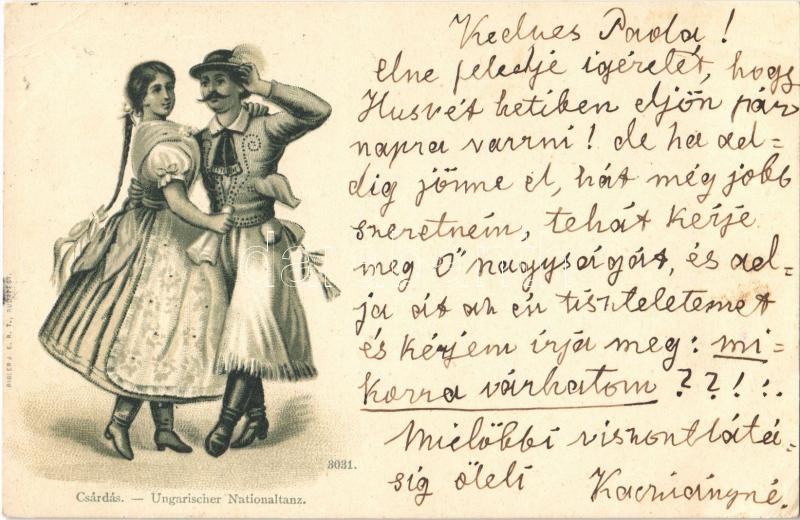 Kedves Paola!
elne feledje igéretét, hogy
Husvét hetiben eljön pár
napra varrni! de ha ad=
dig jönne el, hát még jobb
szeretném, tehát kérje
meg Ő nagyságát, és ad=
ja át az én tiszteletemet
és kérjem írja meg: mi=
korra várhatom ??!:.
Mielőbbi viszontlátá=
sig öleli
3031.
Csárdás. — Ungarischer Nationaltanz.
RIGLER J. E. R. T., BUDAPEST.